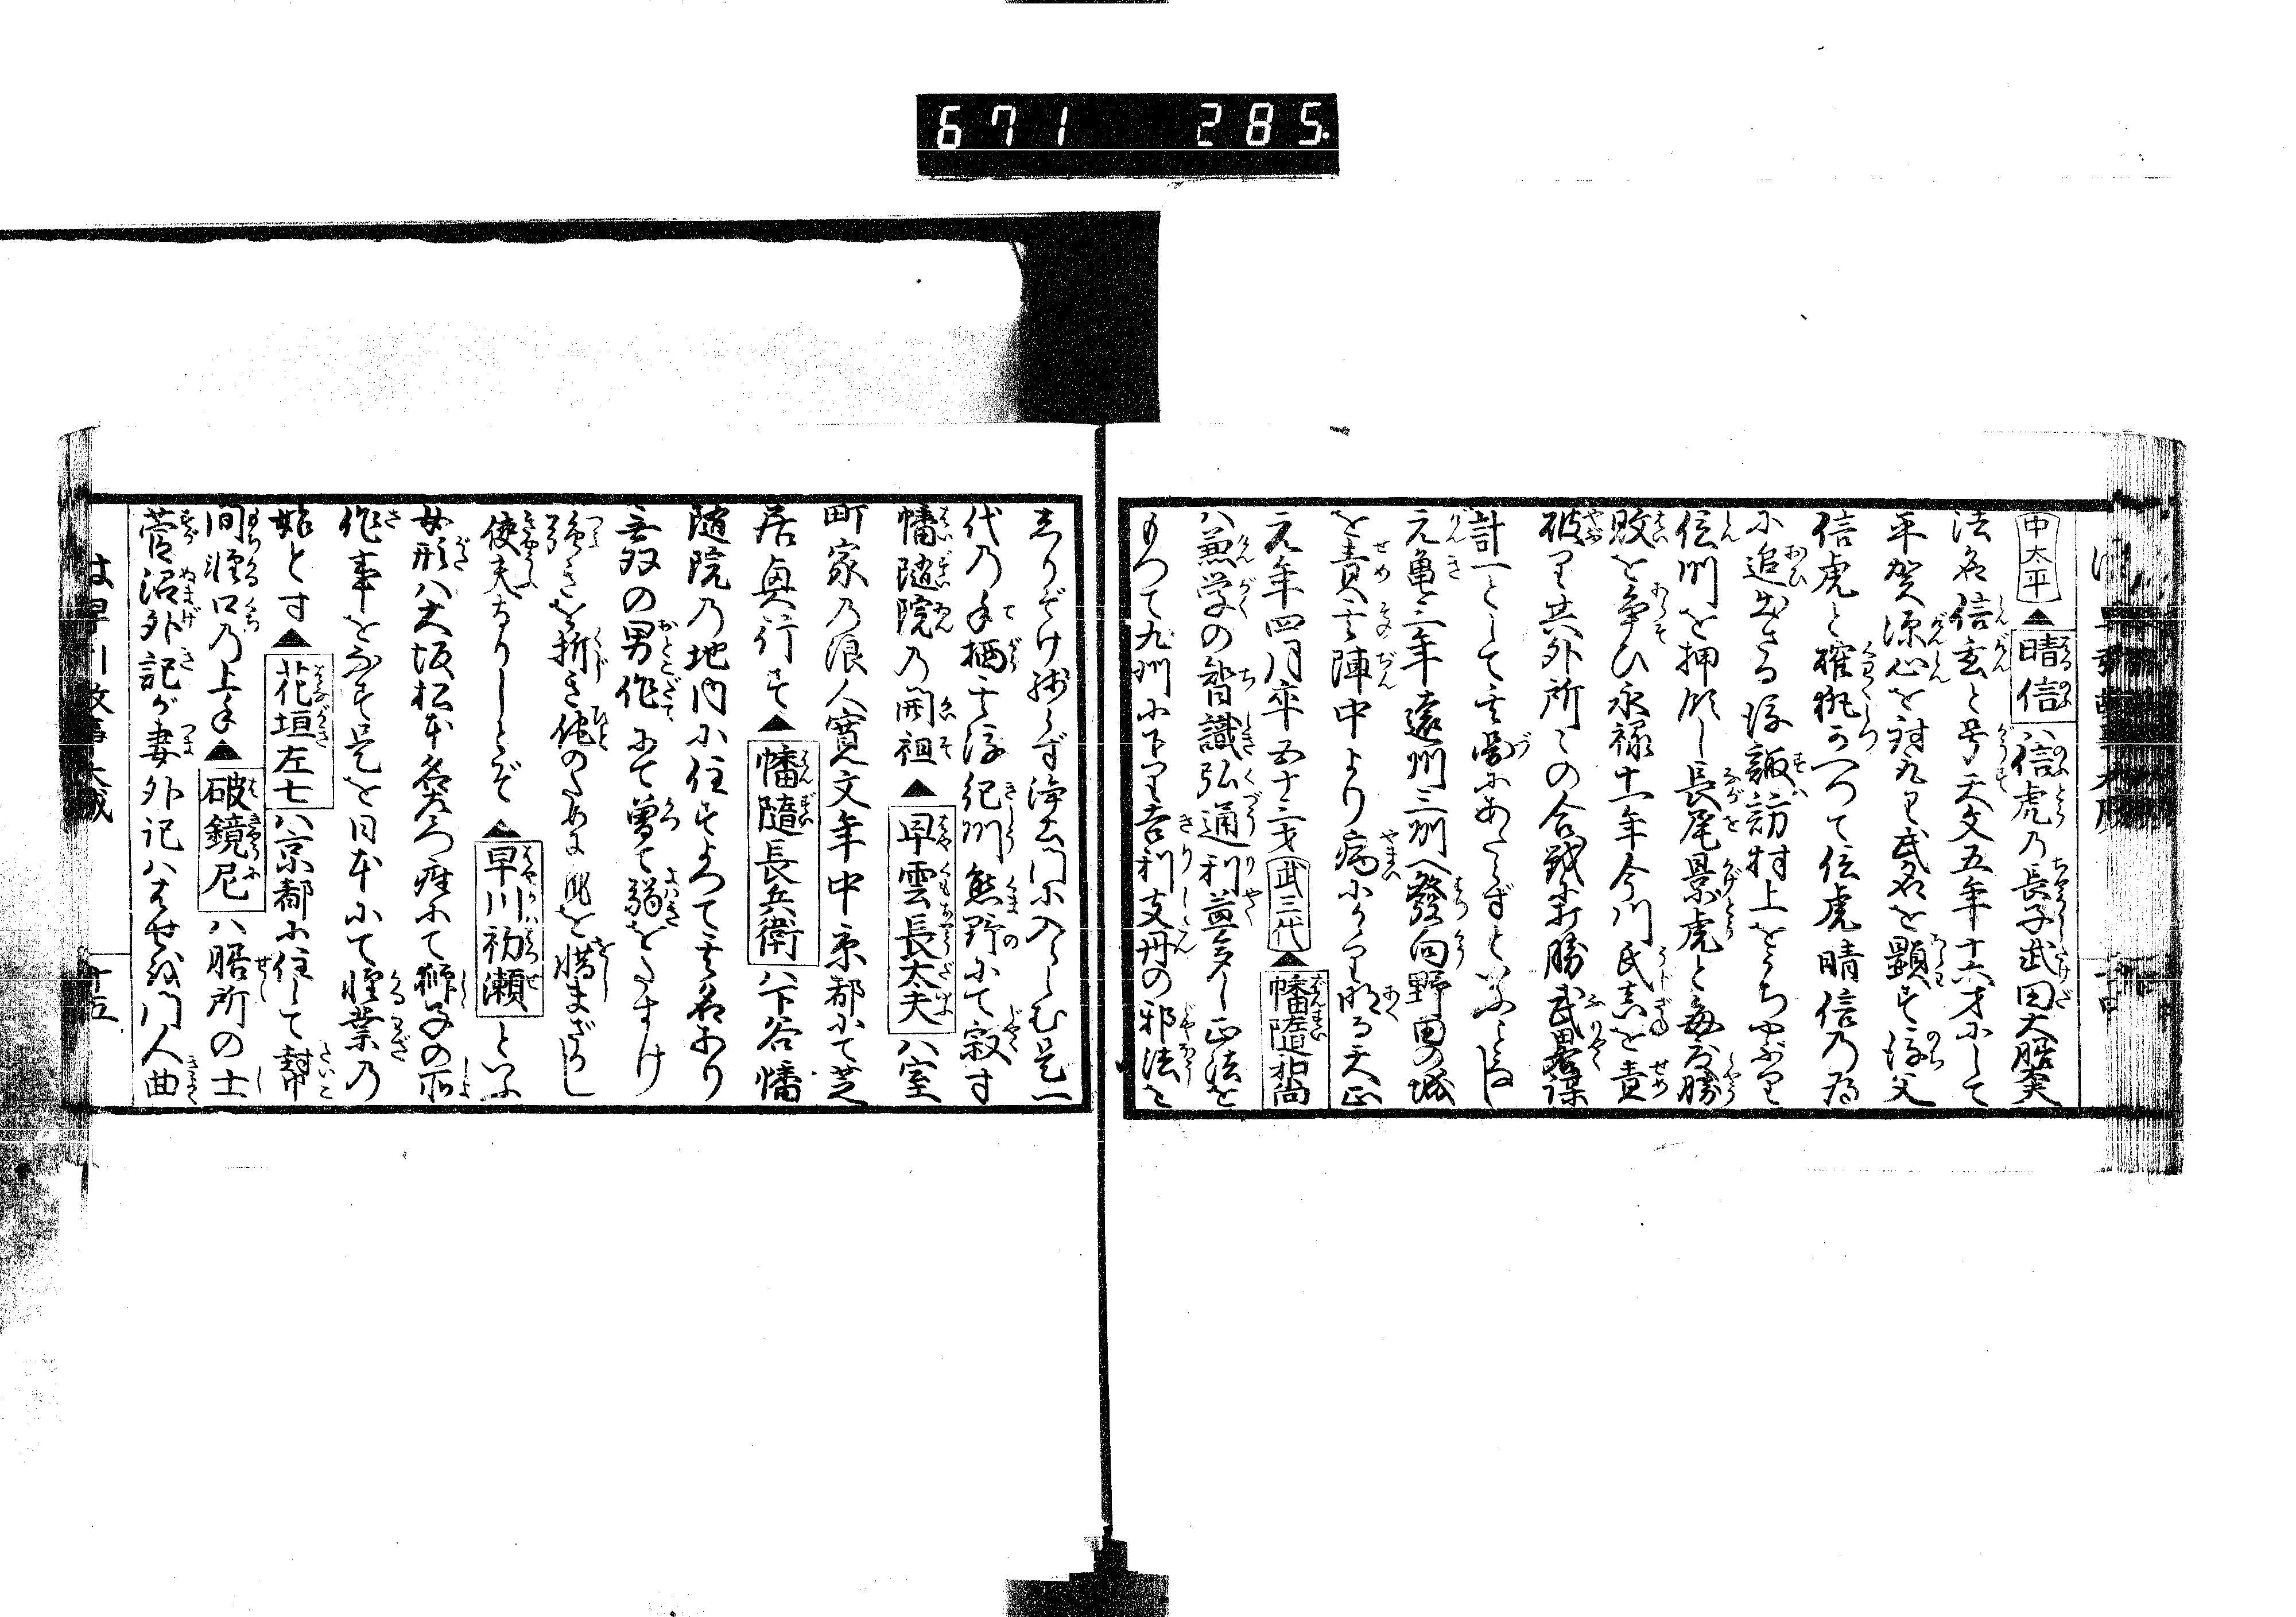 671 285
中太平▲晴信ハ信虎乃長子武田大膳太夫
法名信玄と号す天文五年十六才にして
平賀源心を討九里武名を顕す後父
信虎と確執つて信虎晴信乃為
に追出さる後諏訪村上をうちやぶり
信州を押領し長尾景虎と毎度勝
敗を争ひ永禄十一年今川氏真を責
破り其外所々の合戦打勝武略謀
計一として其図にあたらずといふことなし
元亀三年遠州三州へ發向野田の城
を責其陣中より病にかゝり明る天正
元年四月卒五十三才 武三代▲幡隨和尚
ハ兼学の智識弘通利益多し正法を
もつて九州に下り吉利支丹の邪法を
しりぞけ残らず浄土門に入らしむ是一
代の手柄其後紀州熊野にて寂す
幡随院乃開祖▲早雲長太夫ハ室
町家乃浪人寛文年中京都にて芝
居興行す▲幡隨長兵衛ハ下谷幡
随院乃地内に住すよつて其名あり
無双の男作にて曽て弱をたすけ
強きを折き他のために死を惜まざりし
侠夫なりしとぞ▲早川初瀬といふ
女形ハ大坂松本名左衛門座にて獅子の所
作事をなす是を日本にて軽業乃
始とす▲花垣左七ハ京都に住して幇
間軽口乃上手▲破鏡尼ハ膳所の士
菅沼外記が妻外記ハはせを門人曲
は 早引故事大成 十五